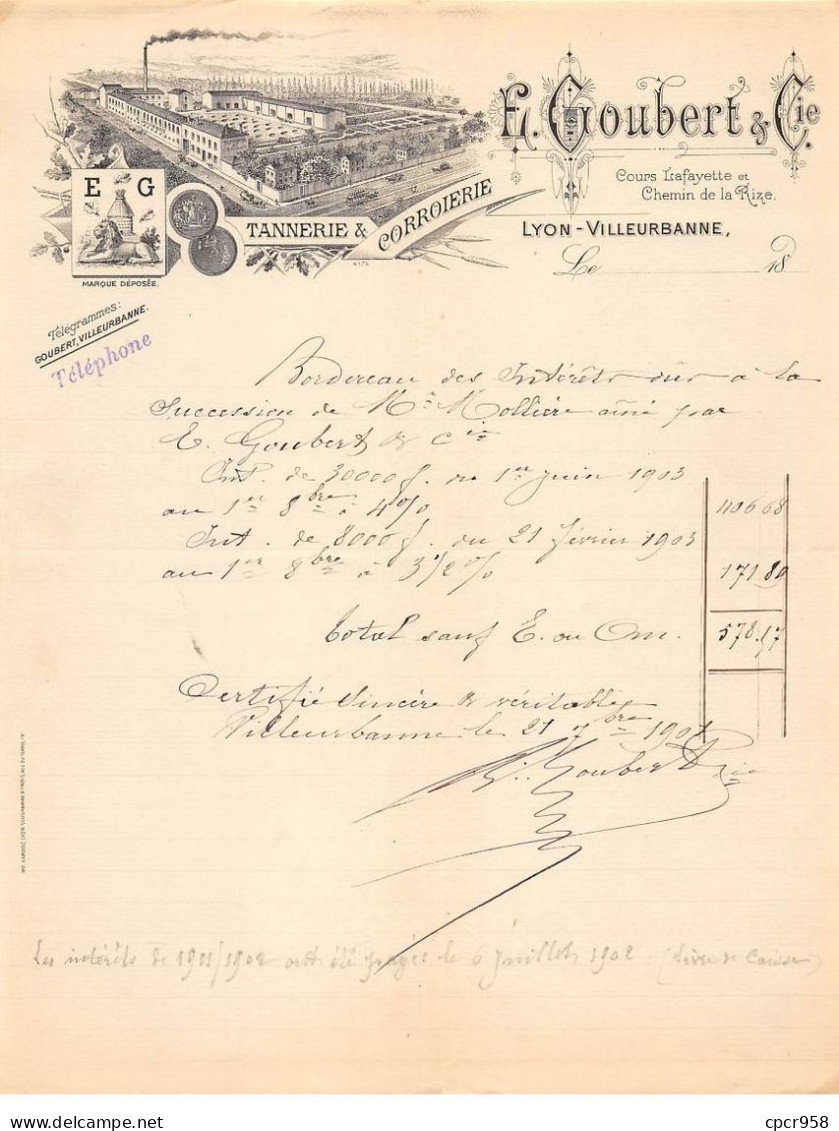 E. Goubert & Cie.
Cours Lafayette et
Chemin de la Rize.
LYON-VILLEURBANNE,
Le 18
E G
TANNERIE & CORROIERIE
MARQUE DÉPOSÉE.
4176
Télégrammes:
GOUBERT, VILLEURBANNE.
Téléphone
Bordereau des Intérêts dûs à la
Succession de Mr Mollière ainé par
E. Goubert & Cie
Int. de 30000 f. du 1er juin 1903
au 1er 8bre à 4% 406 68
Int. de 8000 f. du 21 février 1903
au 1er 8bre à 3 1/2 % 171 80
Total sauf E. ou Om. 578.17
Certifié Sincère & véritable
Villeurbanne le 21 7bre
E. Goubert & Cie
Les intérêts de 1901/1902 ont été payés le 6 Juillet 1902 (Livre de Caisse)
cpcr958